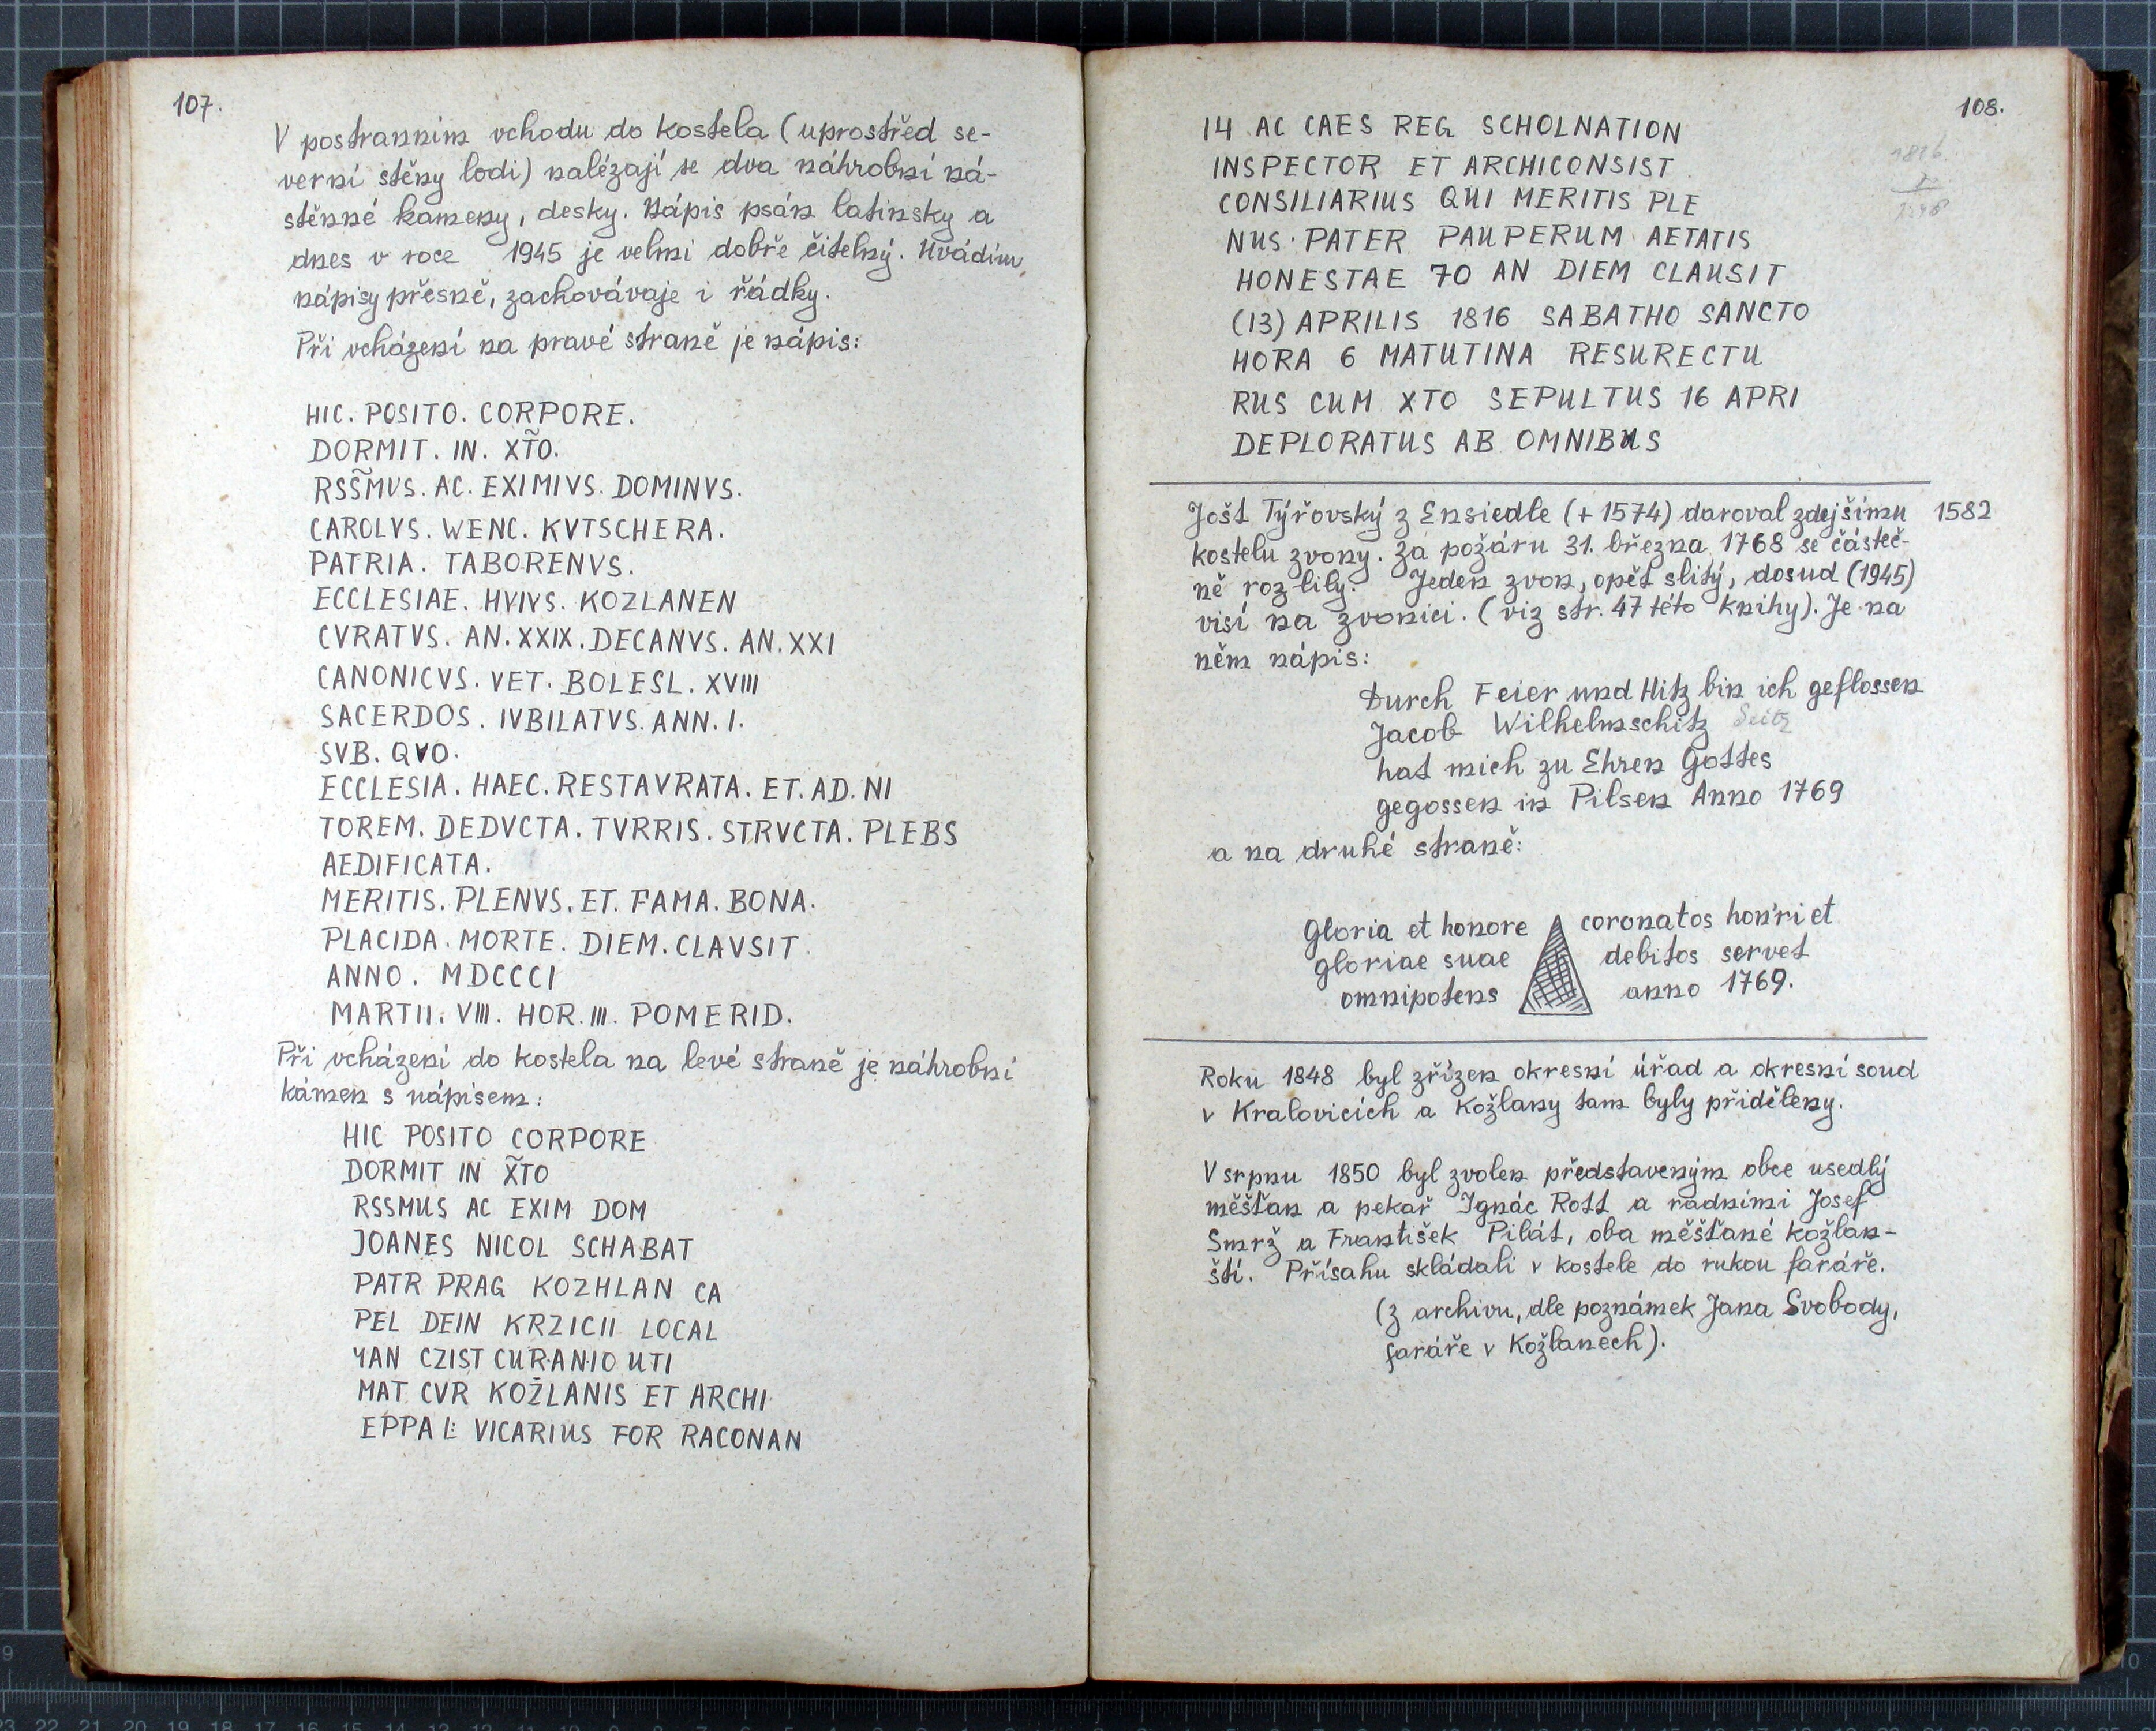 107.
V postranním vchodu do kostela (uprostřed se-
verní stěny lodi) nalézají se dva náhrobní ná-
stěnné kameny, desky. Nápis psán latinsky a
dnes v roce 1945 je velmi dobře čitelný. Uvádím
nápisy přesně, zachovávaje i řádky.
Při vcházení na pravé straně je nápis:
HIC. POSITO. CORPORE.
DORMIT. IN. XT̃O.
RSS̃MVS. AC. EXIMIVS. DOMINVS.
CAROLVS. WENC. KVTSCHERA.
PATRIA. TABORENVS.
ECCLESIAE. HVIVS. KOZLANEN
CVRATVS. AN. XXIX. DECANVS. AN. XXI
CANONICVS. VET. BOLESL. XVIII
SACERDOS. IVBILATVS. ANN. I.
SVB. QVO.
ECCLESIA. HAEC. RESTAVRATA. ET. AD. NI
TOREM. DEDVCTA. TVRRIS. STRVCTA. PLEBS
AEDIFICATA.
MERITIS. PLENVS. ET. FAMA. BONA.
PLACIDA. MORTE. DIEM. CLAVSIT.
ANNO. MDCCCI
MARTII. VIII. HOR. III. POMERID.
Při vcházení do kostela na levé straně je náhrobní
kámen s nápisem:
HIC POSITO CORPORE
DORMIT IN X̃TO
RSSMUS AC EXIM DOM
JOANES NICOL SCHABAT
PATR PRAG KOZHLAN CA
PEL DEIN KRZICII LOCAL
4AN CZIST CUR·AN·10 UTI
MAT CVR KOŽLANIS ET ARCHI
EPPAL: VICARIUS FOR RACONAN
108.
14 AC CAES REG SCHOLNATION
INSPECTOR ET ARCHICONSIST
CONSILIARIUS QUI MERITIS PLE
NUS· PATER PAUPERUM AETATIS
HONESTAE 70 AN DIEM CLAUSIT
(13) APRILIS 1816 SABATHO SANCTO
HORA 6 MATUTINA RESURECTU
RUS CUM XTO SEPULTUS 16 APRI
DEPLORATUS AB OMNIBUS
1816
Jošt Týřovský z Ensiedle (+ 1574) daroval zdejšímu 1582
kostelu zvony. Za požáru 31. března 1768 se částeč-
ně rozlily. Jeden zvon, opět slitý, dosud (1945)
visí na zvonici. (viz str. 47 této knihy). Je na
něm nápis:
Durch Feier und Hitz bin ich geflossen
Jacob Wilhelmschitz Seitz
hat mich zu Ehren Gottes
gegossen in Pilsen Anno 1769
a na druhé straně:
Gloria et honore coronatos hon'ri et
gloriae suae debitos servet
omnipotens anno 1769.
Roku 1848 byl zřízen okresní úřad a okresní soud
v Kralovicích a Kožlany tam byly přiděleny.
V srpnu 1850 byl zvolen představeným obce usedlý
měšťan a pekař Ignác Rott a radními Josef
Smrž a František Pilát, oba měšťané kožlan-
ští. Přísahu skládali v kostele do rukou faráře.
(z archivu, dle poznámek Jana Svobody,
faráře v Kožlanech).